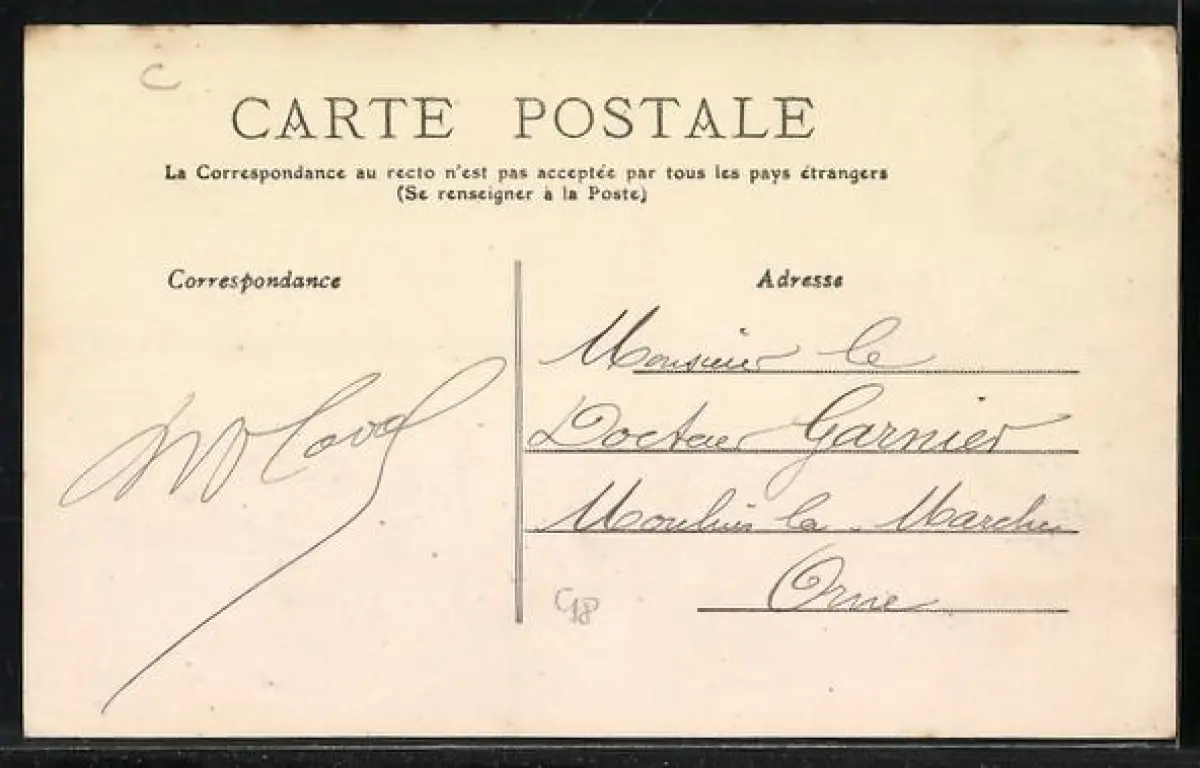 C
CARTE POSTALE
La Correspondance au recto n'est pas acceptée par tous les pays étrangers
(Se renseigner à la Poste)
Correspondance
Adresse
Monsieur le
Docteur Garnier
Moulins la Marche
Orne
C18